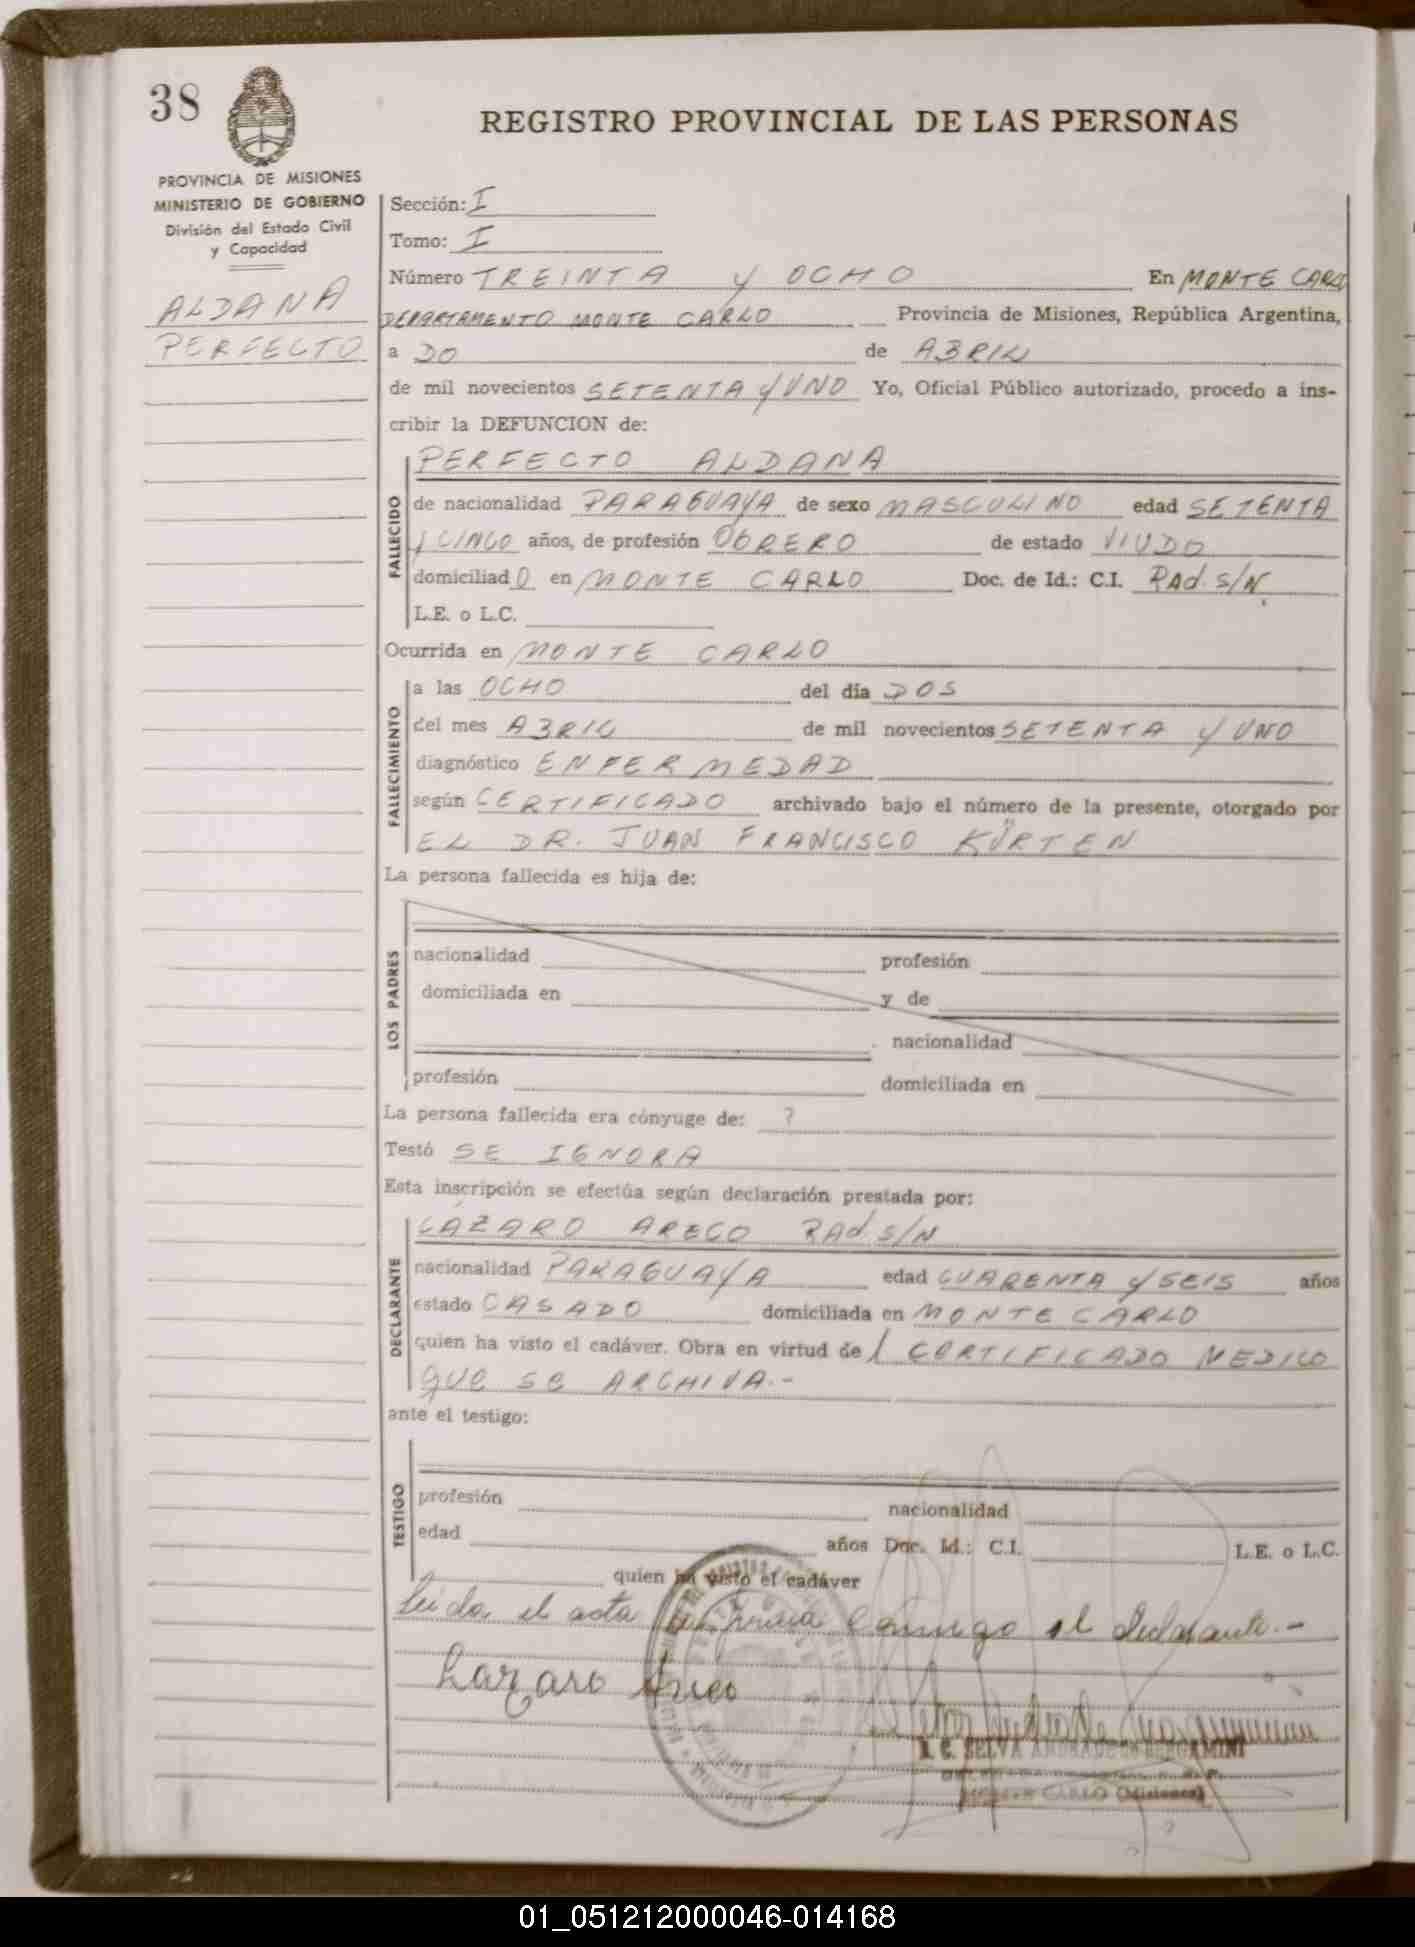 38
REGISTRO PROVINCIAL DE LAS PERSONAS
PROVINCIA DE MISIONES
MINISTERIO DE GOBIERNO
División del Estado Civil
y Capacidad
ALDANA
PERFECTO
Sección: I
Tomo: I
Número TREINTA y OCHO En MONTE CARLO
DEPARTAMENTO MONTE CARLO Provincia de Misiones, República Argentina,
a DO de ABRIL
de mil novecientos SETENTA y UNO Yo, Oficial Público autorizado, procedo a ins-
cribir la DEFUNCION de:
PERFECTO ALDANA
FALLECIDO
de nacionalidad PARAGUAYA de sexo MASCULINO edad SETENTA
y CINCO años, de profesión OBRERO de estado VIUDO
domiciliad O en MONTE CARLO Doc. de Id.: C.I. RAd. S/N.
L.E. o L.C.
Ocurrida en MONTE CARLO
FALLECIMIENTO
a las OCHO del día DOS
del mes ABRIL de mil novecientos SETENTA y UNO
diagnóstico ENFERMEDAD
según CERTIFICADO archivado bajo el número de la presente, otorgado por
EL DR. JUAN FRANCISCO KÜRTEN
La persona fallecida es hija de:
LOS PADRES
nacionalidad profesión
domiciliada en y de
nacionalidad
profesión domiciliada en
La persona fallecida era cónyuge de: ?
Testó SE IGNORA
Esta inscripción se efectúa según declaración prestada por:
DECLARANTE
LÁZARO ARECO RAd. S/N
nacionalidad PARAGUAYA edad CUARENTA y SEIS años
estado CASADO domiciliada en MONTE CARLO
quien ha visto el cadáver. Obra en virtud de l CERTIFICADO MEDICO
QUE SE ARCHIVA.-
ante el testigo:
TESTIGO
profesión nacionalidad
edad años Doc. Id.: C.I. L.E. o L.C.
quien ha visto el cadáver
Leida el acta la firma conmigo el declarante.-
Lazaro Areco
SELVA ANDRADE de BERGAMINI
MONTE CARLO (Misiones)
01_051212000046-014168